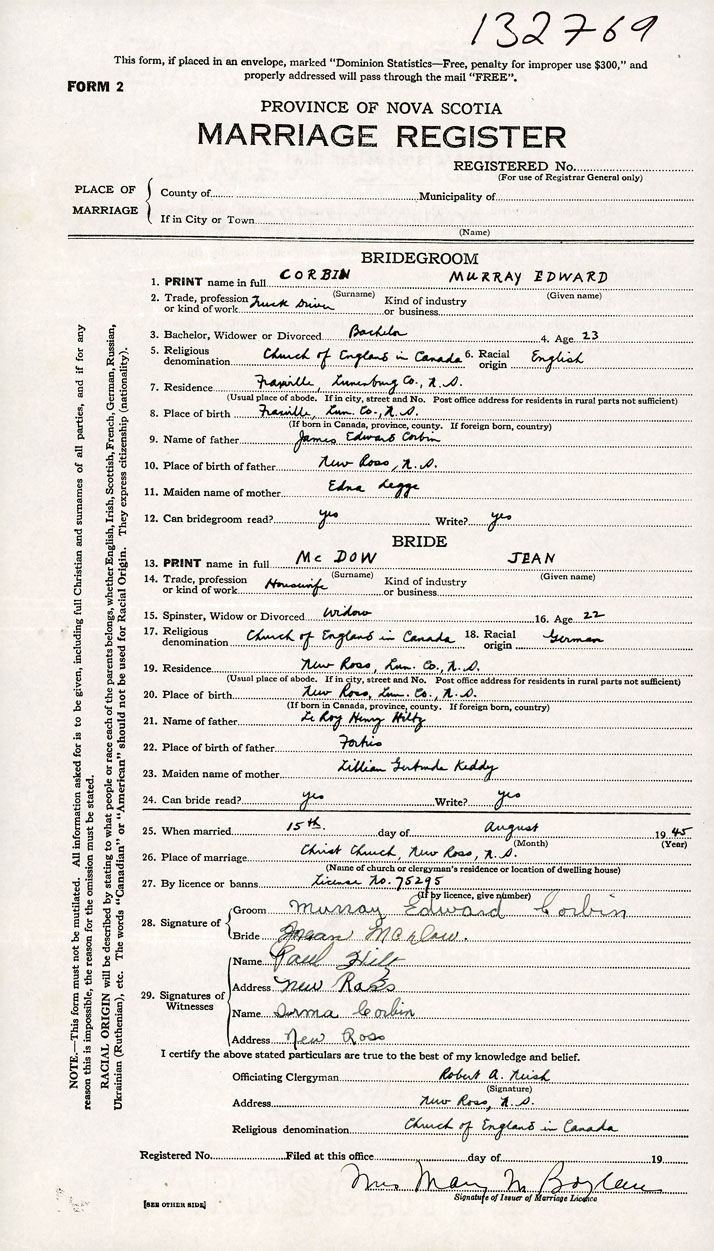 132769
This form, if placed in an envelope, marked "Dominion Statistics—Free, penalty for improper use $300," and
properly addressed will pass through the mail "FREE".
FORM 2
PROVINCE OF NOVA SCOTIA
MARRIAGE REGISTER
REGISTERED No.
(For use of Registrar General only)
PLACE OF MARRIAGE
County of Municipality of
If in City or Town
(Name)
BRIDEGROOM
1. PRINT name in full CORBIN MURRAY EDWARD
(Surname) (Given name)
2. Trade, profession or kind of work Truck Driver Kind of industry or business
3. Bachelor, Widower or Divorced Bachelor 4. Age 23
5. Religious denomination Church of England in Canada 6. Racial origin English
7. Residence Fraxville, Lunenburg Co., N.S.
(Usual place of abode. If in city, street and No. Post office address for residents in rural parts not sufficient)
8. Place of birth Fraxville, Lun. Co., N.S.
(If born in Canada, province, county. If foreign born, country)
9. Name of father James Edward Corbin
10. Place of birth of father New Ross, N.S.
11. Maiden name of mother Edna Legge
12. Can bridegroom read? yes Write? yes
BRIDE
13. PRINT name in full McDOW JEAN
(Surname) (Given name)
14. Trade, profession or kind of work Housewife Kind of industry or business
15. Spinster, Widow or Divorced Widow 16. Age 22
17. Religious denomination Church of England in Canada 18. Racial origin German
19. Residence New Ross, Lun. Co., N.S.
(Usual place of abode. If in city, street and No. Post office address for residents in rural parts not sufficient)
20. Place of birth New Ross, Lun. Co., N.S.
(If born in Canada, province, county. If foreign born, country)
21. Name of father Le Roy Henry Hiltz
22. Place of birth of father Forties
23. Maiden name of mother Lillian Gertrude Keddy
24. Can bride read? yes Write? yes
25. When married 15th. day of August 1945
(Month) (Year)
26. Place of marriage Christ Church, New Ross, N.S.
(Name of church or clergyman's residence or location of dwelling house)
27. By licence or banns License No. 75295
(If by licence, give number)
28. Signature of Groom Murray Edward Corbin
Bride Jean McDow.
29. Signatures of Witnesses
Name Paul Hilt
Address New Ross
Name Irma Corbin
Address New Ross
I certify the above stated particulars are true to the best of my knowledge and belief.
Officiating Clergyman Robert A. Nish
(Signature)
Address New Ross, N.S.
Religious denomination Church of England in Canada
Registered No. Filed at this office day of 19
Mrs Mary M
Signature of Issuer of Marriage Licence
[SEE OTHER SIDE]
NOTE.—This form must not be mutilated. All information asked for is to be given, including full Christian and surnames of all parties, and if for any
reason this is impossible, the reason for the omission must be stated.
RACIAL ORIGIN will be described by stating to what people or race each of the parents belongs, whether English, Irish, Scottish, French, German, Russian,
Ukrainian (Ruthenian), etc. The words "Canadian" or "American" should not be used for Racial Origin. They express citizenship (nationality).